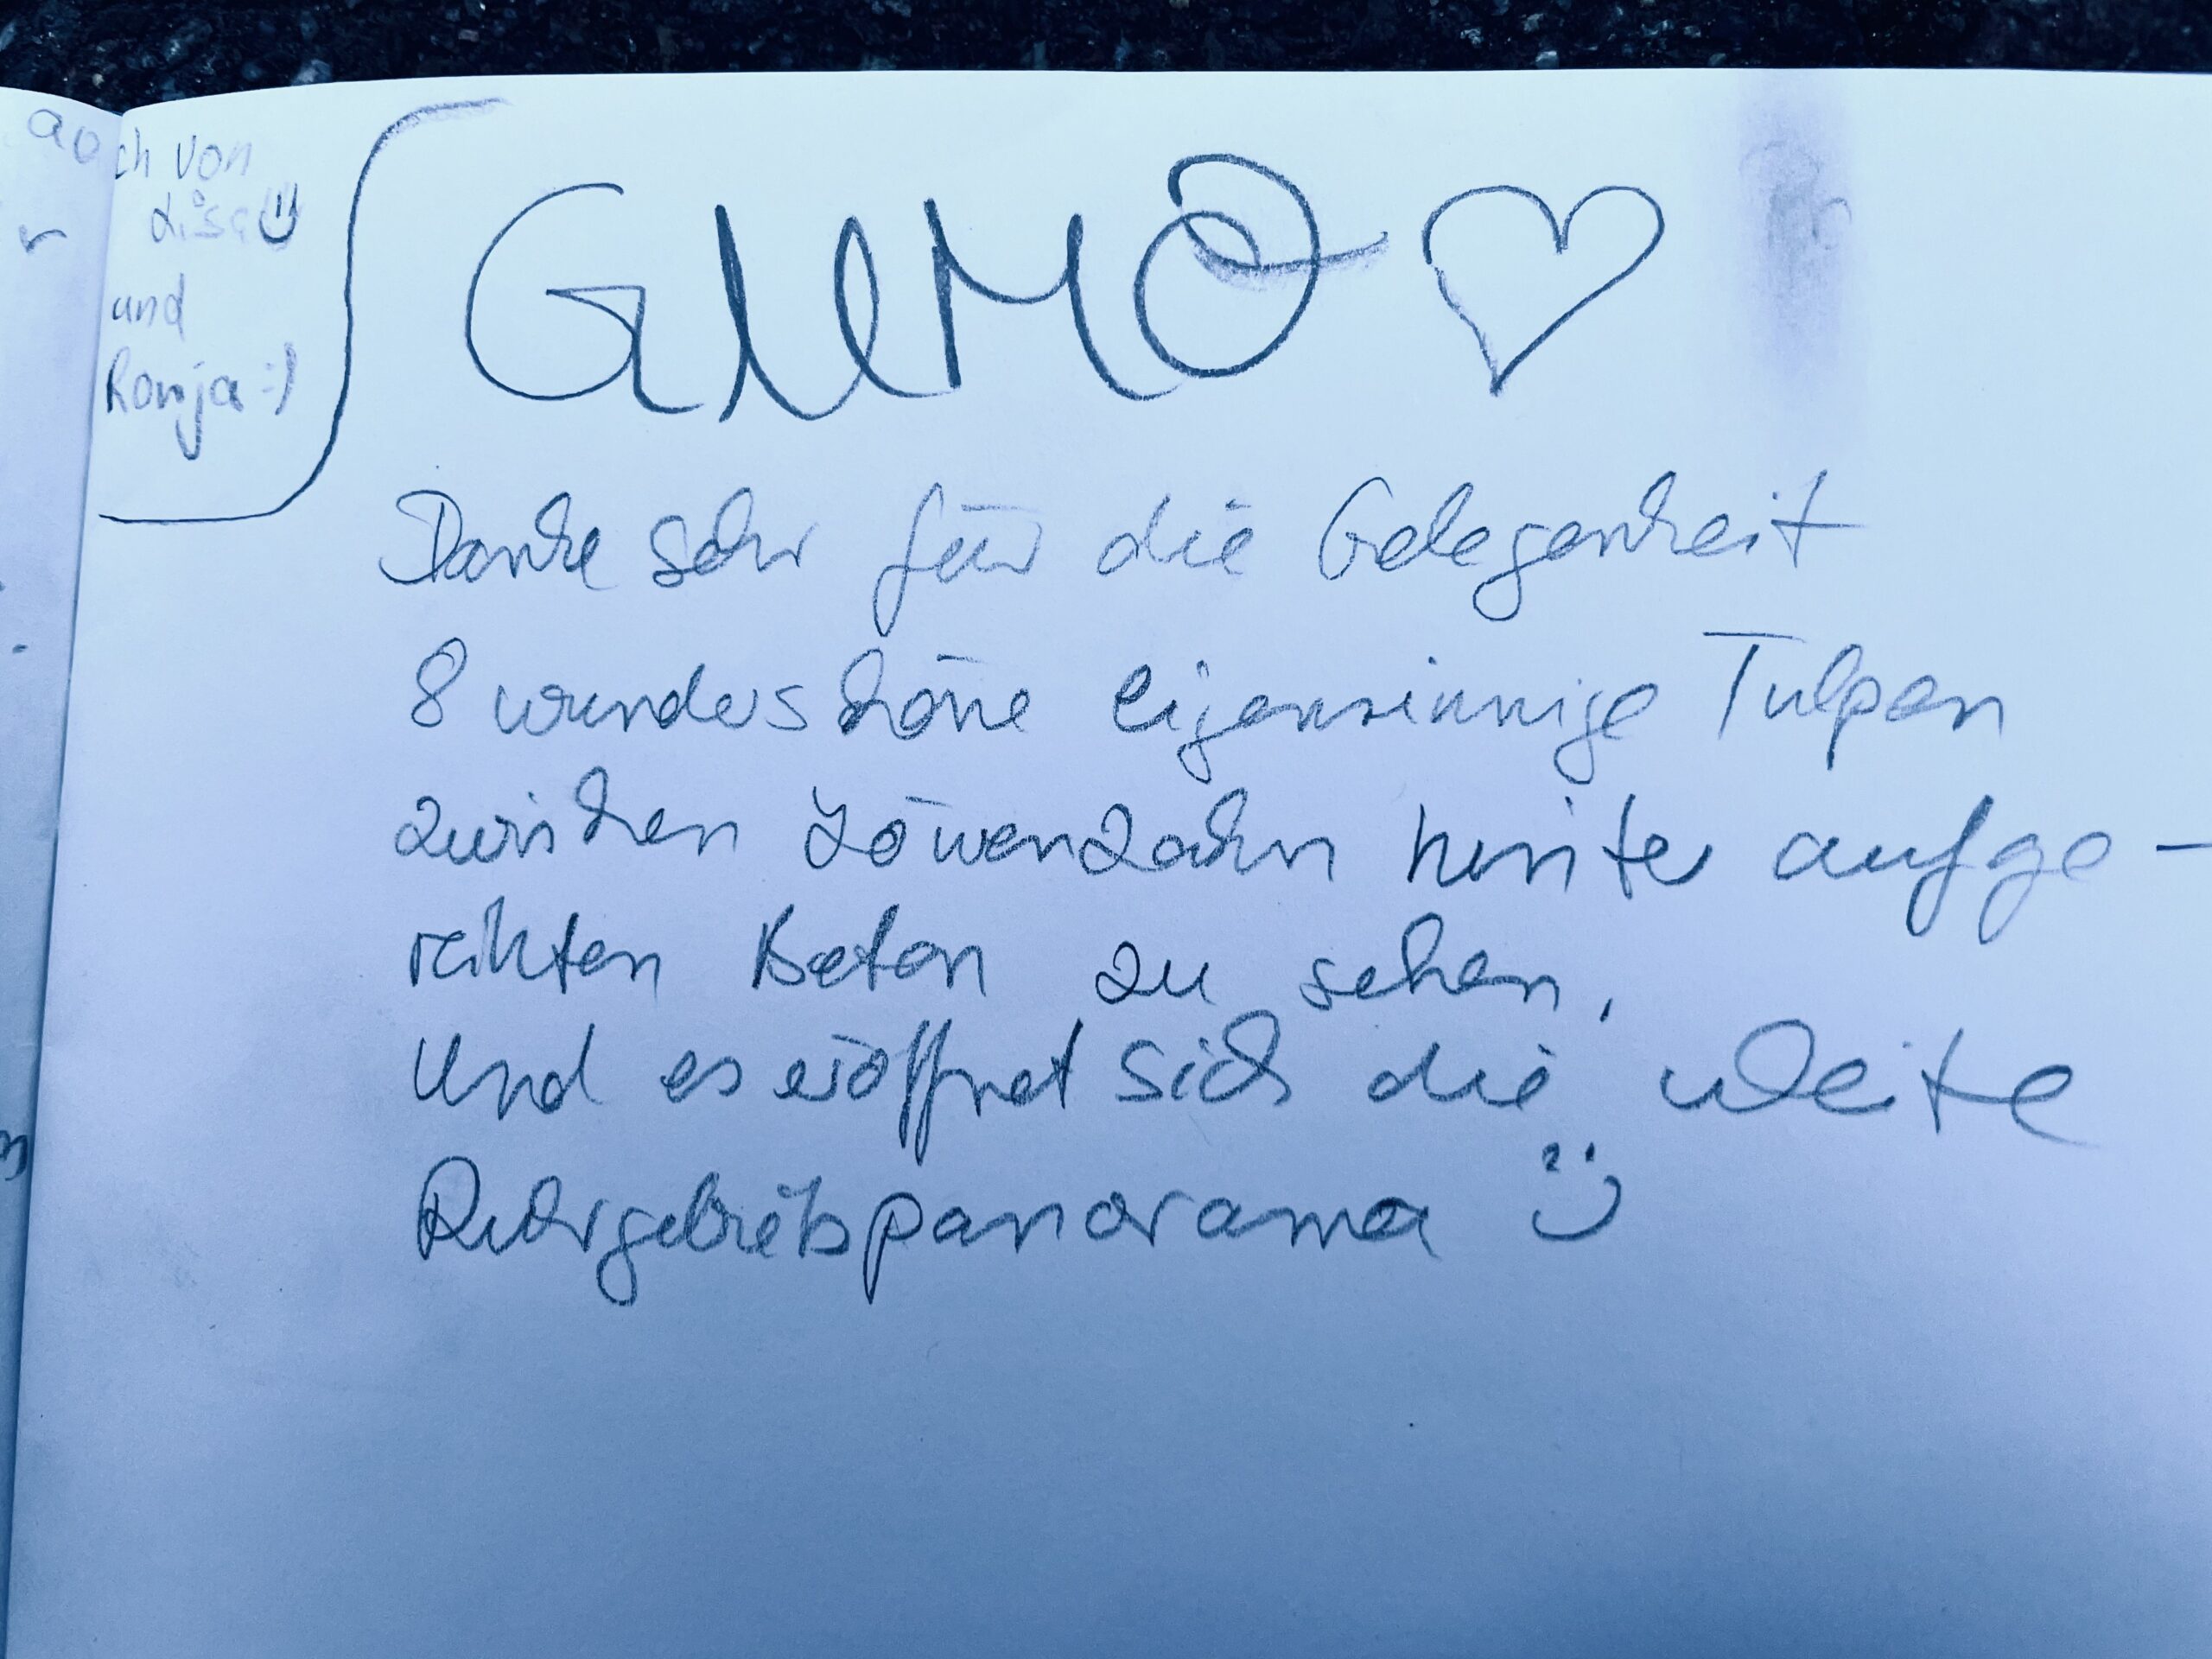 ch von
Lisa
und
Ronja :)
GUMO ♡
Danke sehr für die Gelegenheit
8 wunderschöne eigensinnige Tulpen
zwischen Löwenzahn hinter aufge-
reihten Beton zu sehen,
Und es eröffnet sich die weite
Ruhrgebietspanorama :)